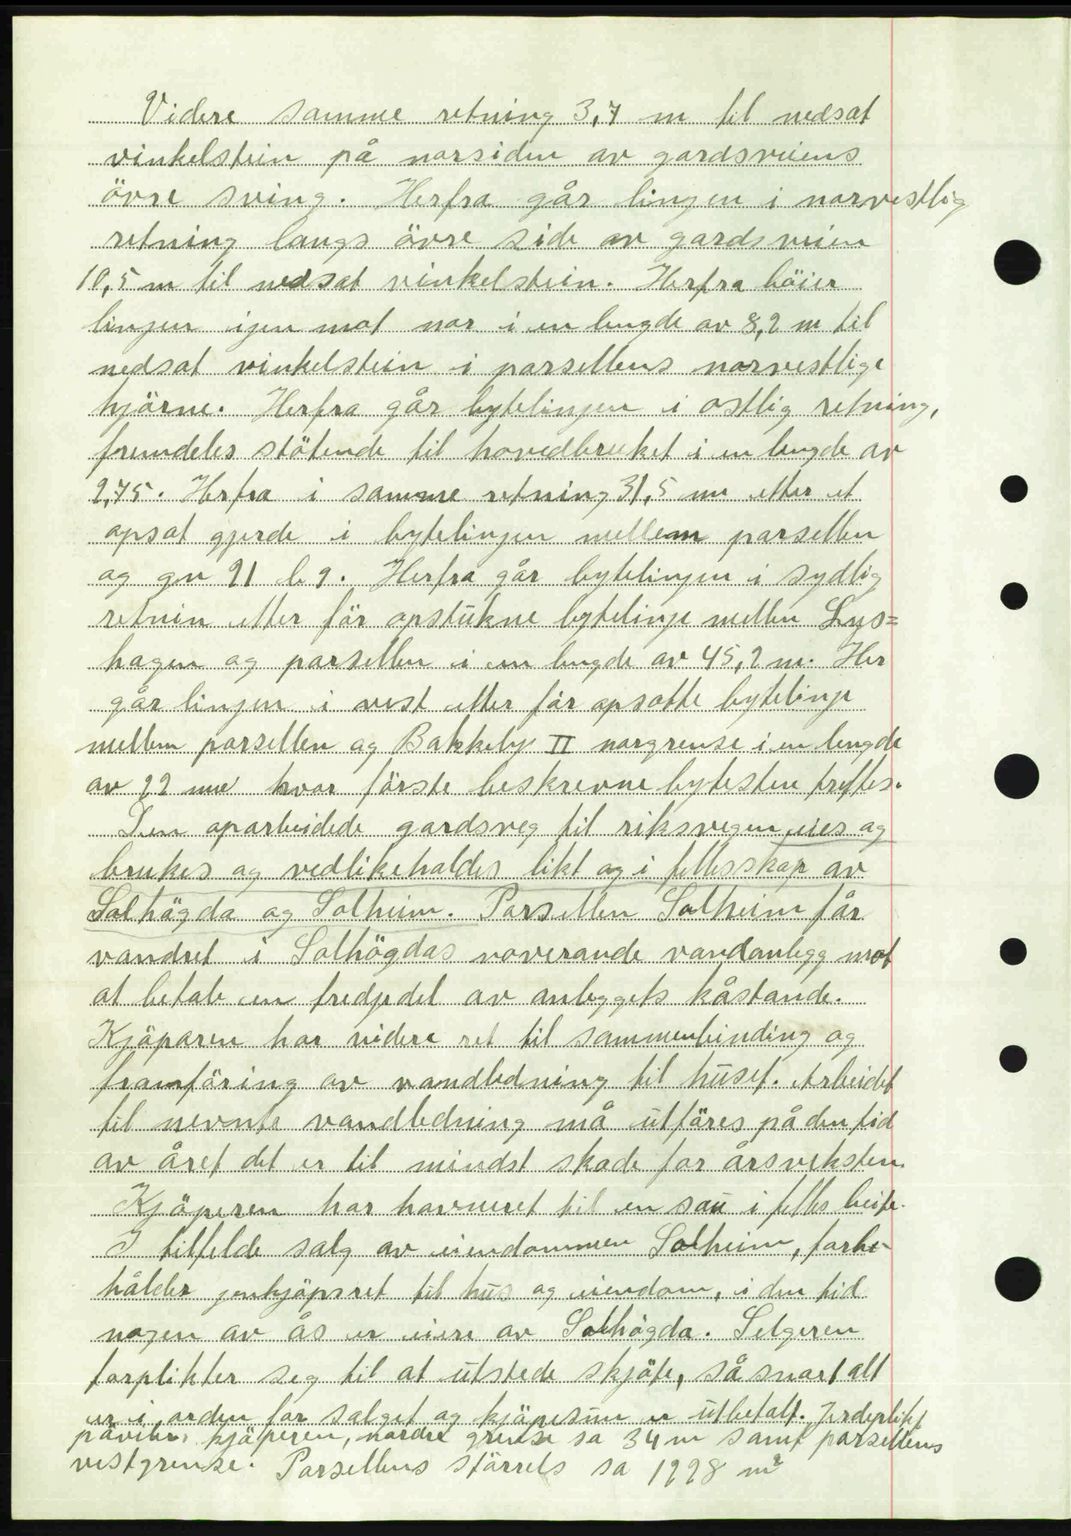 Videre samme retning 3,7 m til nedsat
vinkelstein på norsiden av gardsveiens
övre sving. Herfra går linjen i norvestlig
retning langs övre side av gardsveien
10,5 m til nedsat vinkelstein. Herfra böier
linjen igen mot nor i en lengde av 8,2 m til
nedsat vinkelstein i parsellens norvestlige
hjörne. Herfra går bytelinjen i ostlig retning,
fremdeles stötende til hovedbruket i en lengde av
2,75. Herfra i samme retning 31,5 m etter et
opsat gjerde i bytelinjen mellem parsellen
og gn 21 b 9. Herfra går bytelinjen i sydlig
retnin etter för opstukne bytelinje mellen Lys=
hagen og parsellen i en lengde av 45,2 m. Her
går linjen i vest etter för opsatte bytelinje
mellem parsellen og Bakkeby II norgrense i en lengde
av 22 m hvor förste beskrevne bytestene treffes.
Den oparbeidede gardsveg til riksvegen eies og
brukes og vedlikeholdes likt og i fellesskap av
Solhögda og Solheim. Parsellen Solheim får
vandret i Solhögdas noverande vandanlegg mot
at betale en tredjedel av anleggets kåstande.
Kjöparen har videre ret til sammenbinding og
framföring av vandledning til huset. Arbeidet
til nevnte vandledning må utföres på den tid
av året det er til mindst skade for årsveksten.
Kjöperen har havneret til en sau i felles beite.
I tilfelde salg av eiendommen Solheim, forbe-
hålder jenkjöpsret til hus og eiendom, i den tid
nogen av ås er eiere av Solhögda. Selgeren
forplikter seg til at utstede skjöte, så snart alt
er i orden for salget og kjöpesum er utbetalt. Jerdeplikt
påviler kjöperen, nordre grense sa 34 m samt parsellens
vestgrense. Parsellens störrels sa 1228 m²